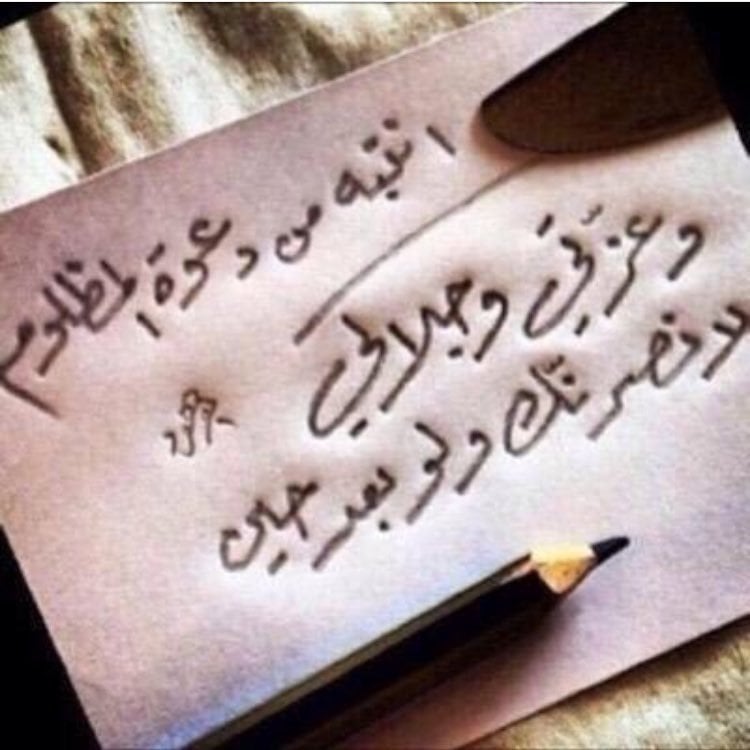 انتبه من دعوة المظلوم
وعزتي وجلالي
لانصرنّك ولو بعد حين